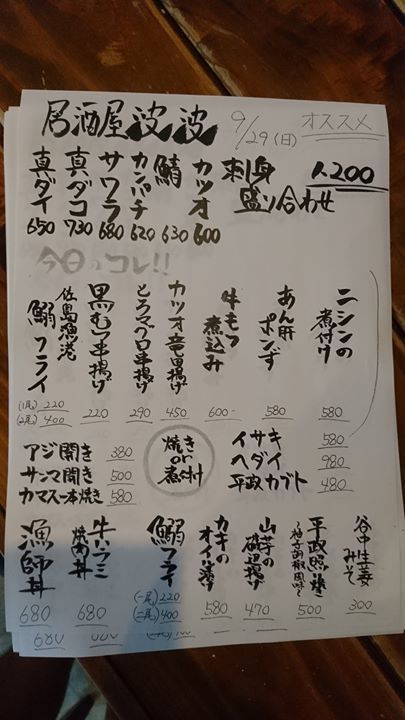 居酒屋 波波 9/29(日) オススメ
刺身盛り合わせ 1,200
カツオ 600
鯖 630
カンパチ 620
サワラ 680
真ダコ 730
真ダイ 650
今日のコレ!!
ニシンの煮付け 580
あん肝ポンず 580
牛もつ煮込み 600
カツオ竜田揚げ 450
290
黒むつ串揚げ 220
佐島漁港
鰯フライ (1尾) 220 (2尾) 400
焼き or 煮付
イサキ 580
ヘダイ 980
平政カブト 480
アジ開き 380
サンマ開き 500
カマス一本焼き 580
谷中生姜みそ 300
平政照焼 〜柚子胡椒風味〜 500
山芋の磯辺揚げ 470
カキのオイル漬け 580
鰯フライ (一尾) 220 (二尾) 400
焼肉丼 680
漁師丼 680